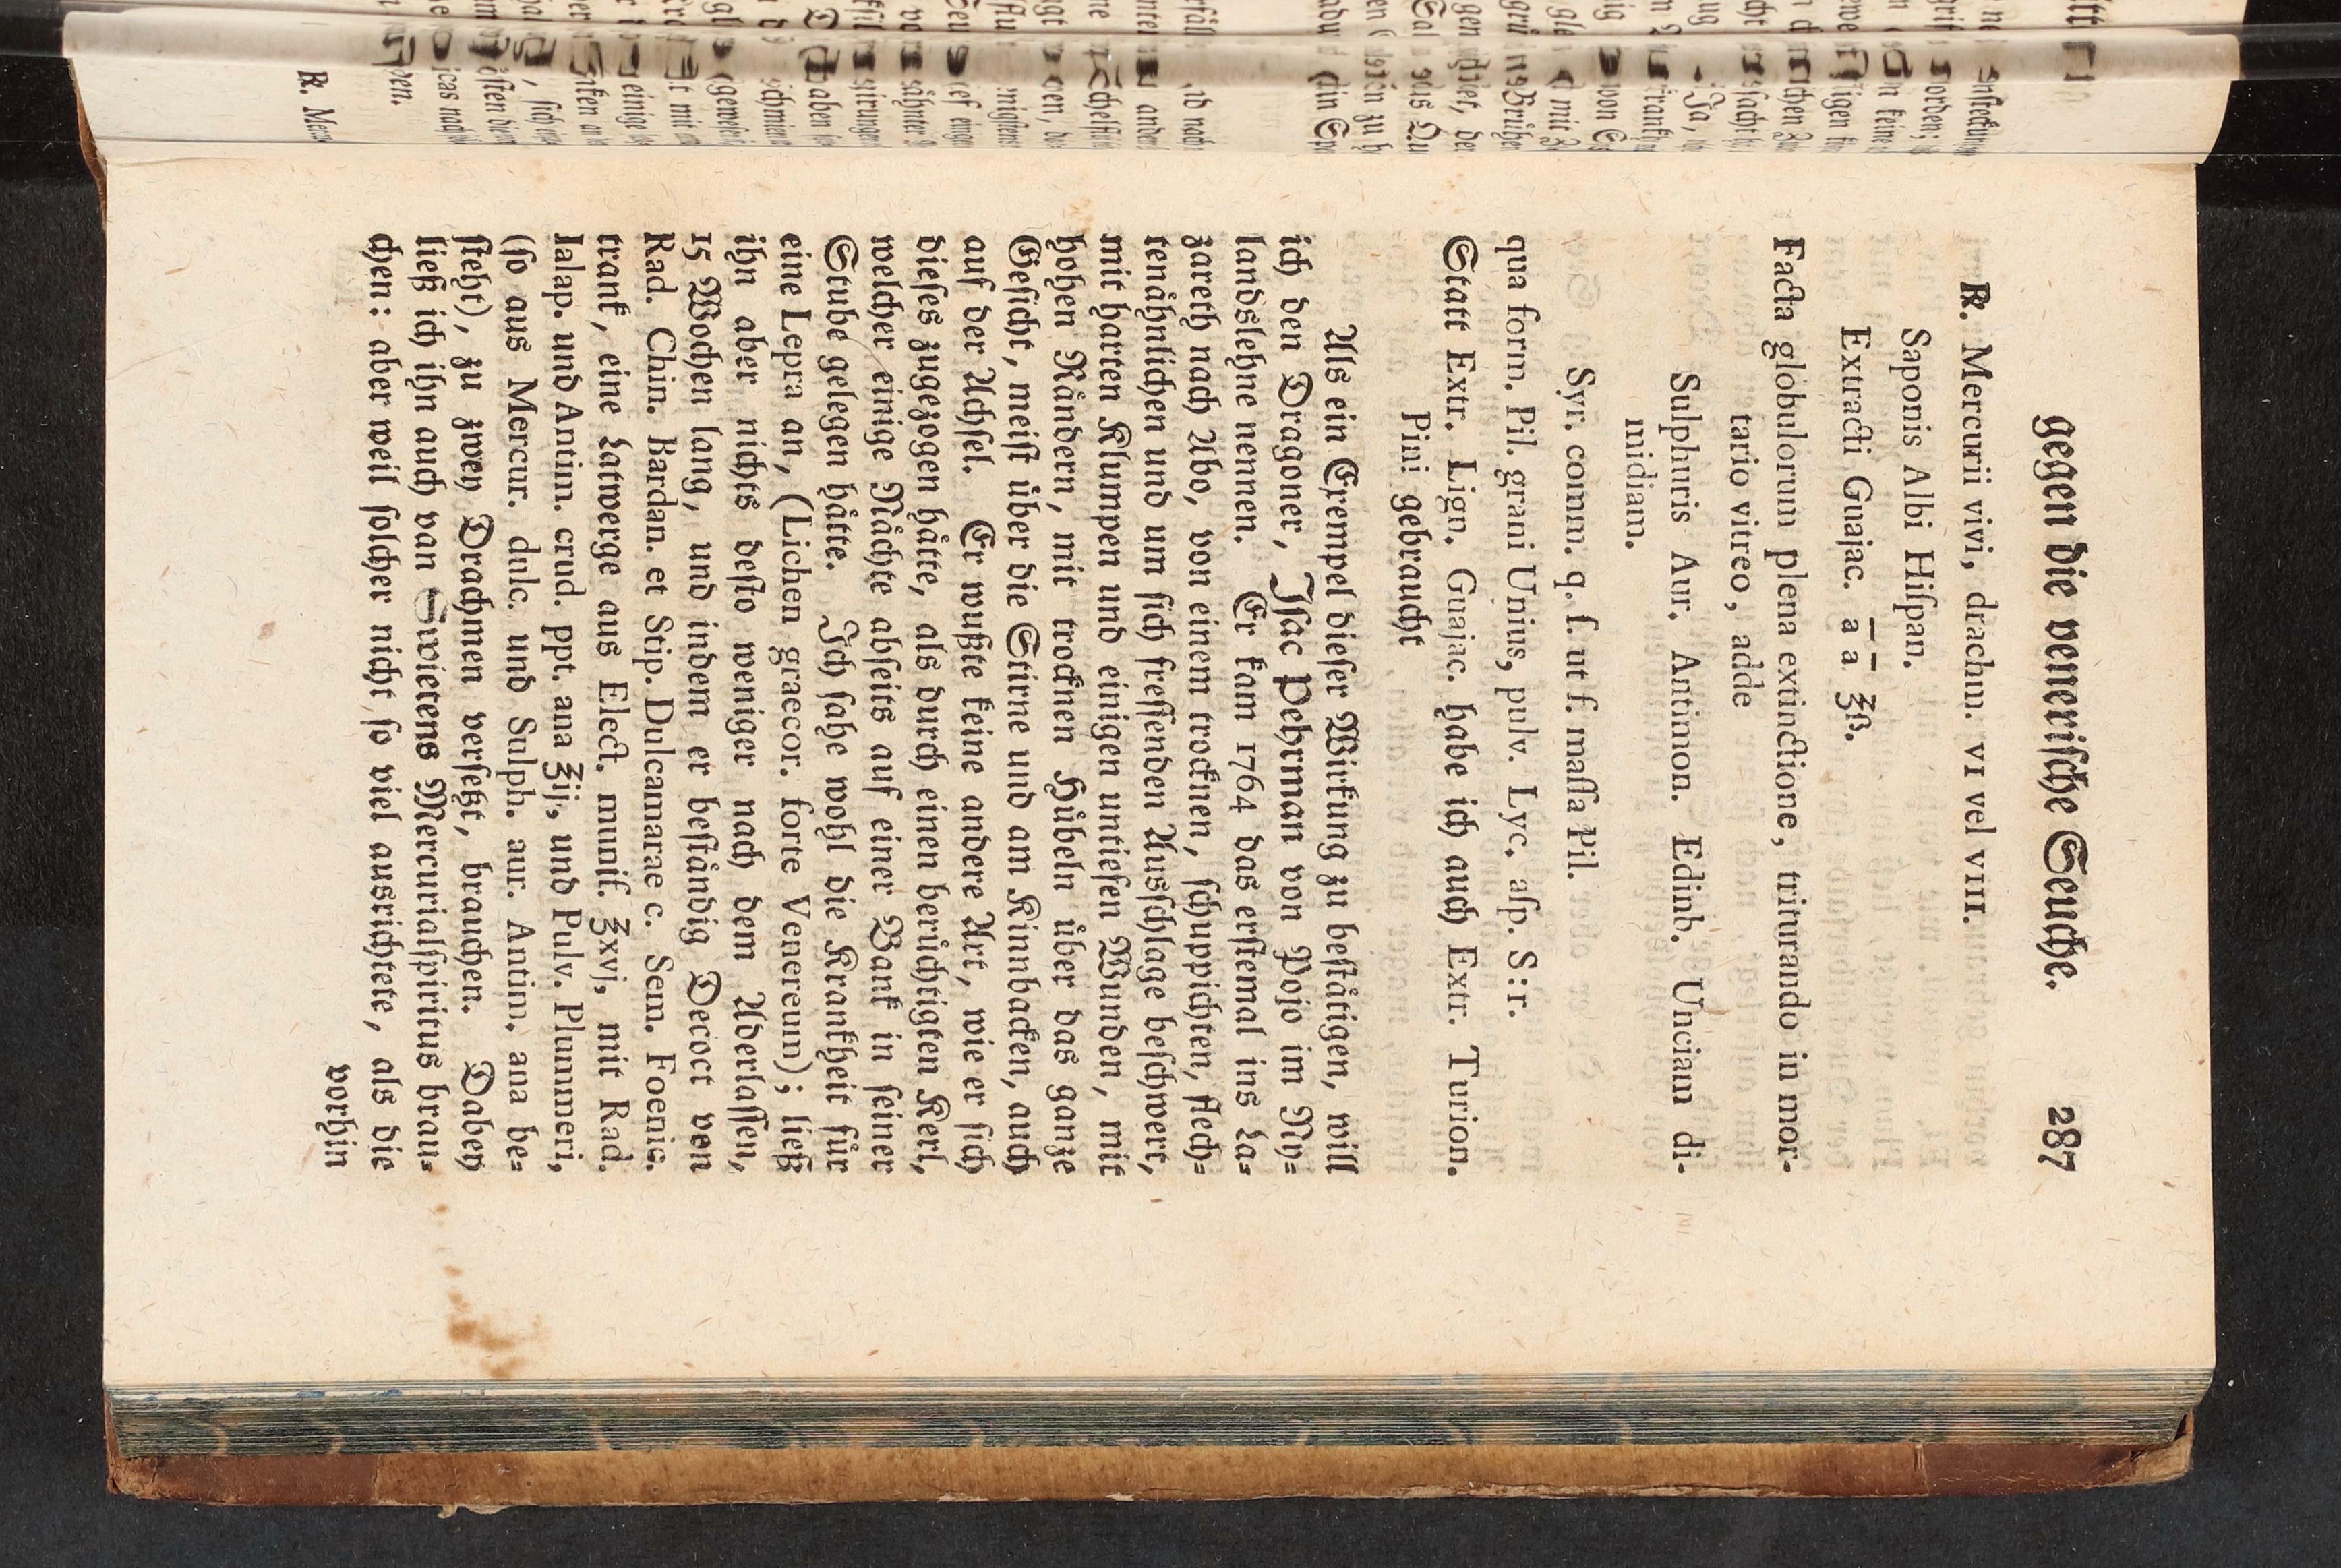 gegen die venerische Seuche. 287
℞. Mercurii vivi, drachm. VI vel VIII.
Saponis Albi Hiſpan.
Extracti Guajac. a̅ a̅ ʒß.
Facta globulorum plena extinctione, triturando in mor-
tario vitreo, adde
Sulphuris Aur. Antimon. Edinb. Unciam di-
midiam.
Syr. comm. q. ſ. ut f. maſſa Pil.
qua form. Pil. grani Unius, pulv. Lyc. aſp. S:r.
Statt Extr. Lign. Guajac. habe ich auch Extr. Turion.
Pini gebraucht
Als ein Exempel dieſer Wirkung zu beſtätigen, will
ich den Dragoner, Iſac Pehrman von Pojo im Ny=
landslehne nennen. Er kam 1764 das erſtemal ins La=
zareth nach Abo, von einem trocknen, ſchuppichten, flech=
tenähnlichen und um ſich freſſenden Ausſchlage beſchwert,
mit harten Klumpen und einigen untiefen Wunden, mit
hohen Rändern, mit trocknen Hübeln über das ganze
Geſicht, meiſt über die Stirne und am Kinnbacken, auch
auf der Achſel. Er wußte keine andere Art, wie er ſich
dieſes zugezogen hätte, als durch einen berüchtigten Kerl,
welcher einige Nächte abſeits auf einer Bank in ſeiner
Stube gelegen hätte. Ich ſahe wohl die Krankheit für
eine Lepra an, (Lichen graecor. forte Venereum); ließ
ihn aber nichts deſto weniger nach dem Aderlaſſen,
15 Wochen lang, und indem er beſtändig Decoct von
Rad. Chin. Bardan. et Stip. Dulcamarae c. Sem. Foenic.
trank, eine Latwerge aus Elect. munif. ʒxvj, mit Rad.
Ialap. und Antim. crud. ppt. ana ʒij, und Pulv. Plummeri,
(ſo aus Mercur. dulc. und Sulph. aur. Antim. ana be=
ſteht), zu zwey Drachmen verſetzt, brauchen. Dabey
ließ ich ihn auch van Swietens Mercurialſpiritus brau=
chen: aber weil ſolcher nicht ſo viel ausrichtete, als die
vorhin